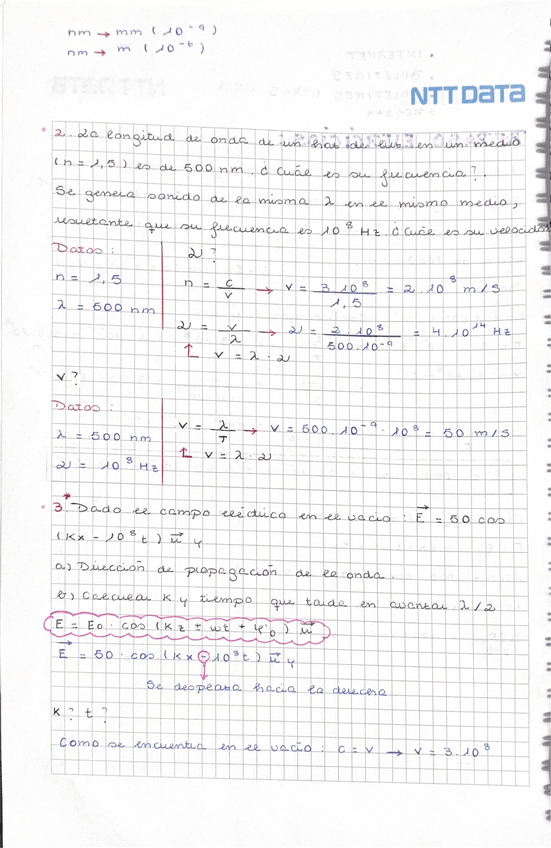 nm → mm (10⁻⁹)
nm → m (10⁻⁶)
NTT DATA
2. La longitud de onda de un haz de luz en un medio
(n = 1,5) es de 500 nm. ¿Cuál es su frecuencia?.
Se genera sonido de la misma λ en el mismo medio,
resultante que su frecuencia es 10⁸ Hz. ¿Cuál es su velocidad
Datos:
n = 1,5
λ = 500 nm
ν?
n = c/v → v = 3·10⁸/1,5 = 2·10⁸ m/s
ν = v/λ → ν = 2·10⁸/500·10⁻⁹ = 4·10¹⁴ Hz
v = λ·ν
v?
Datos:
λ = 500 nm
ν = 10⁸ Hz
v = λ/T → v = 500·10⁻⁹·10⁸ = 50 m/s
v = λ·ν
*
3. Dado el campo eléctrico en el vacío: E⃗ = 50 cos
(Kx - 10⁸t) u⃗ y
a) Dirección de propagación de la onda.
b) Calcular K y tiempo que tarda en avanzar λ/2
E = E₀ · cos (Kz ± wt + φ₀) u⃗
E⃗ = 50 · cos (Kx - 10⁸t) u⃗ y
Se desplaza hacia la derecha
K? t?
Como se encuentra en el vacío: c = v → v = 3·10⁸